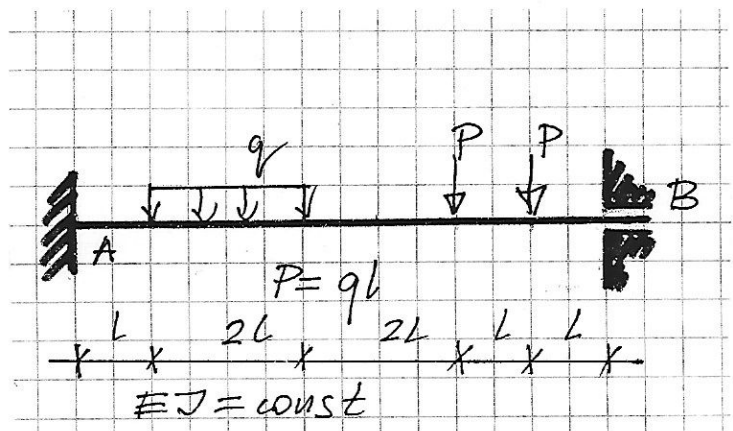 q P P
A B
P = ql
L 2L 2L L L
EJ = const